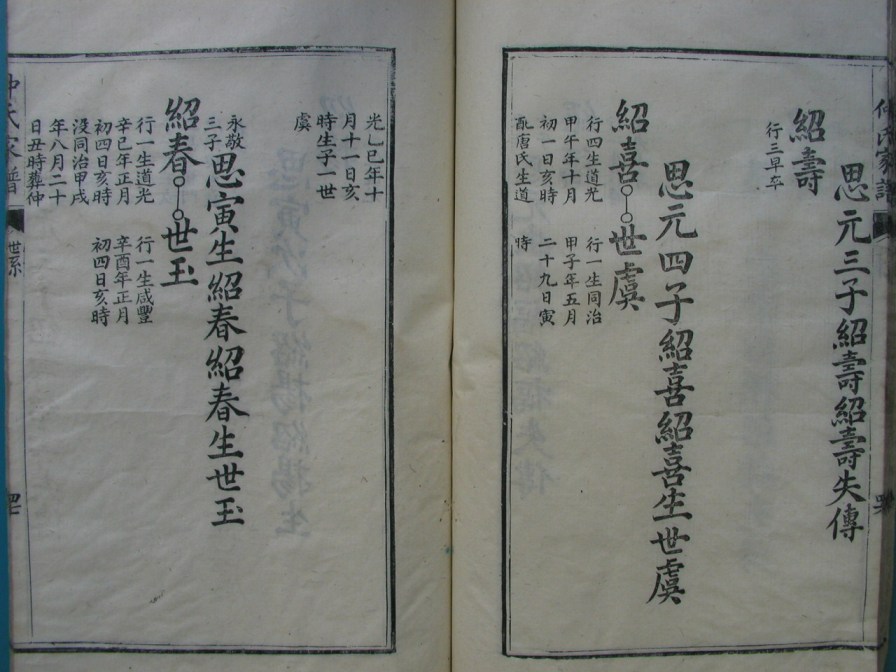 思元三子紹壽紹壽失傳
紹壽
行三早卒
思元四子紹喜紹喜生世虞
紹喜
世虞
行四生道光
甲午年十月
初一日亥時
配唐氏生道
行一生同治
甲子年五月
二十九日寅
時
光乙巳年十
月十一日亥
時生子一世
虞
永敬
三子
思寅生紹春紹春生世玉
紹春
世玉
行一生道光
辛巳年正月
初四日亥時
没同治甲戌
年八月二十
日丑時葬仲
行一生咸豐
辛酉年正月
初四日亥時
氏家譜
世系